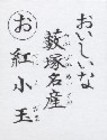 おいしいな
藪塚名産
お 紅小玉